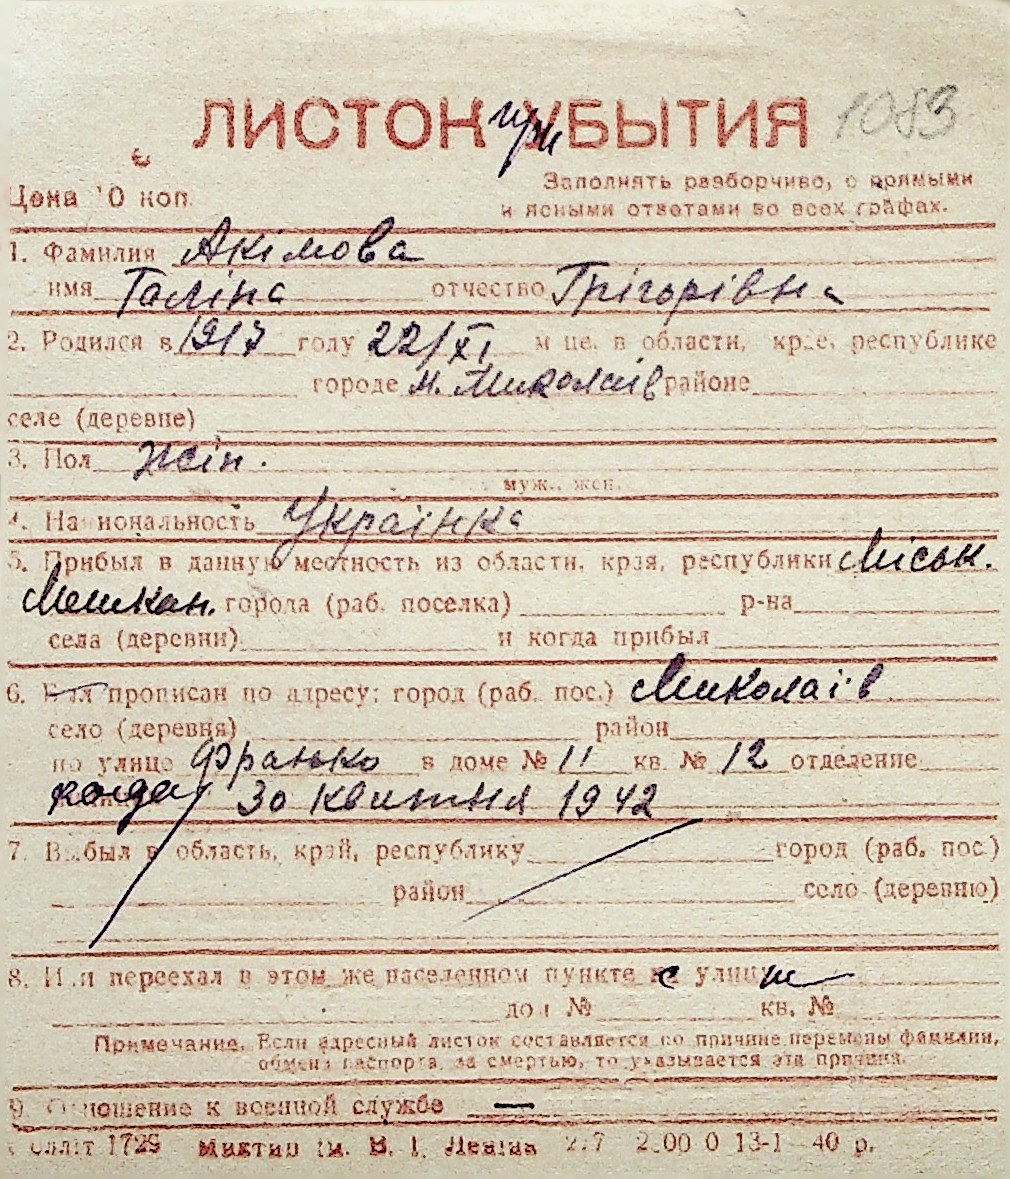 ЛИСТОК при УБЫТИЯ 1083
Цена 10 коп.
Заполнять разборчиво, с прямыми
и ясными ответами во всех графах.
1. Фамилия Акімова
имя Галіна отчество Грігорівна
2. Родился в 1917 году 22/XI м-це, в области, крае, республике
городе м. Миколаїв районе
селе (деревне)
3. Пол жін.
муж., жен.
4. Национальность Українка
5. Прибыл в данную местность из области, края, республики Міськ.
Мешкан. города (раб. поселка) р-на
села (деревни) и когда прибыл
6. Был прописан по адресу: город (раб. пос.) Миколаїв
село (деревня) район
по улице Франько в доме № 11 кв. № 12 отделение
когда 30 квітня 1942
7. Выбыл в область, край, республику город (раб. пос.)
район село (деревню)
8. Или переехал в этом же населенном пункте с улицы
дом № кв. №
Примечание. Если адресный листок составляется по причине перемены фамилии,
обмена паспорта, за смертью, то указывается эта причина.
9. Отношение к военной службе —
1729 ім. В. І. Леніна 2.00 0 13-1 40 р.